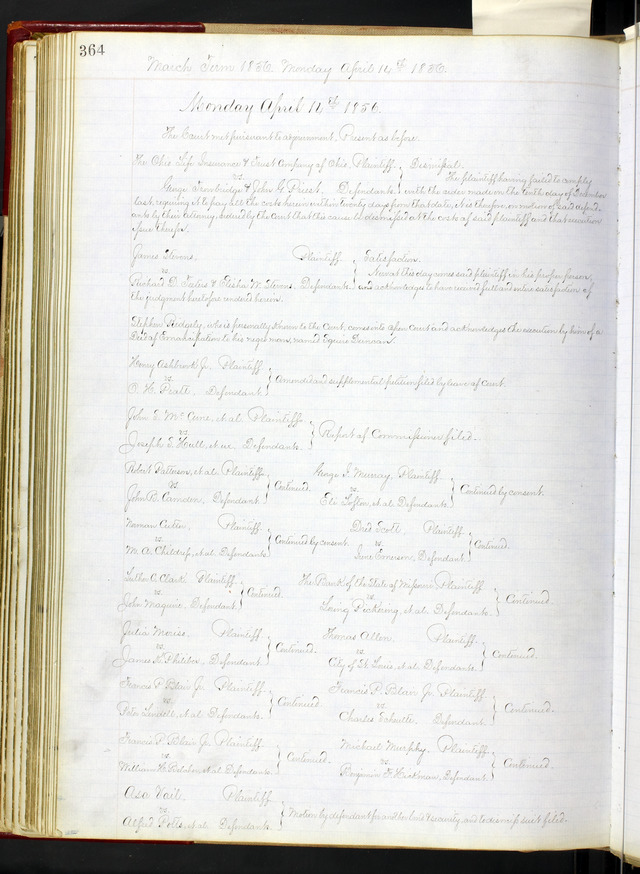 364
March Term 1856. Monday April 14th 1856.
Monday April 14th 1856.
The Court met pursuant to adjournment, Present as before.
The Ohio Life Insurance & Trust Company of Ohio, Plaintiff. } Dismissal.
vs. The plaintiff having failed to comply
George Trowbridge & John G. Priest. Defendants. with the order made on the tenth day of December
last, requiring it to pay all the costs herein within twenty days from that date, it is therefore, on motion of said defend-
ants by their attorney, ordered by the Court that this cause be dismissed at the costs of said plaintiff and that execution
issue therefor.
James Stevens. Plaintiff } Satisfaction.
vs. Now at this day comes said plaintiff in his proper person,
Richard D. & Elisha W. Stevens. Defendants. and acknowledges to have received full and entire satisfaction of
the judgment heretofore rendered herein.
Stephen Ridgely, who is personally known to the Court, comes into open Court and acknowledges the execution by him of a
Deed of Emancipation to his negro man, named Duncan.
Henry Ashbrook Jr. Plaintiff
vs. } Amended and supplemental petition filed by leave of Court.
Pratt, Defendant
John E. McCune, et al. Plaintiffs.
vs. } Report of Commissioner filed.
Joseph S. Hull, et ux. Defendants.
Robert Patterson, et al. Plaintiffs. George S. Murray, Plaintiff.
vs. } Continued. vs. } Continued by consent.
John B. Camden, Defendant. Eli Lofton, et al. Defendants.
Norman Cutter, Plaintiff. Dred Scott, Plaintiff.
vs. } Continued by consent. vs. } Continued.
W. A. Childress, et al. Defendants. Irene Emerson, Defendant.
Luther C. Clark, Plaintiff. The Bank of the State of Missouri, Plaintiff.
vs. } Continued. vs. } Continued.
John Maguire, Defendant. Loring Pickering, et al. Defendants.
Julia Plaintiff. Thomas Allen, Plaintiff.
vs. } Continued. vs. } Continued.
James H. Philibor, Defendant. City of St. Louis, et al. Defendants.
Francis P. Blair Jr. Plaintiff. Francis P. Blair Jr. Plaintiff.
vs. } Continued. vs. } Continued.
Peter Lindell, et al. Defendants. Charles Defendant.
Francis P. Blair Jr. Plaintiff. Michael Murphy, Plaintiff.
vs. } Continued. vs. } Continued.
William H. Belcher, et al. Defendants. Benjamin F. Hickman, Defendant.
Asa Vail. Plaintiff
vs. } Motion by defendant for security and to dismiss suit filed.
Alfred Potts, et al. Defendants.